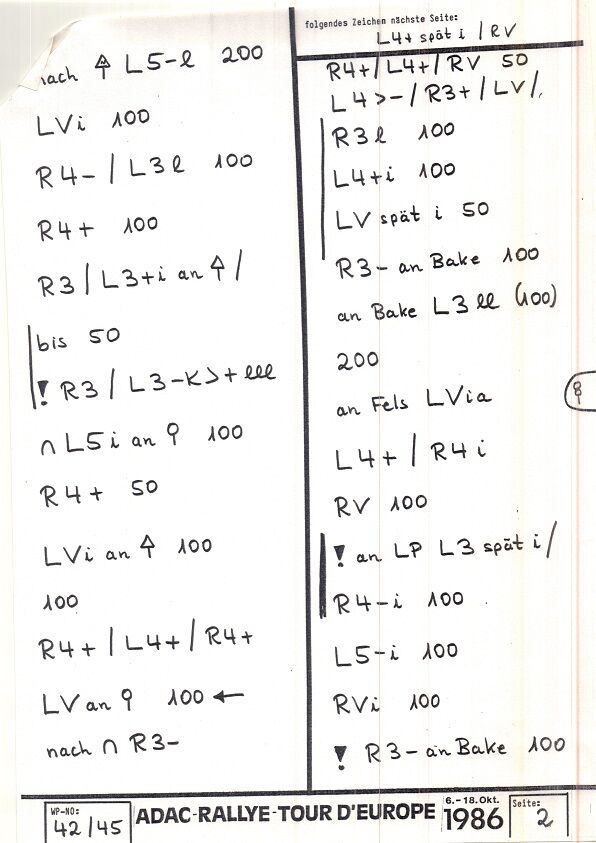 nach ↑ L5-l 200
LVi 100
R4- / L3l 100
R4+ 100
R3 / L3+i an ↑ /
bis 50
! R3 / L3-K>+lll
∩ L5i an ♀ 100
R4+ 50
LVi an ↑ 100
100
R4+ / L4+ / R4+
LV an ♀ 100 ←
nach ∩ R3-
folgendes Zeichen nächste Seite:
L4+ spät i / RV
R4+ / L4+ / RV 50
L4>- / R3+ / LV /
R3l 100
L4+i 100
LV spät i 50
R3- an Bake 100
an Bake L3ll (100)
200
an Fels LVia
L4+ / R4i
RV 100
! an LP L3 spät i /
R4-i 100
L5-i 100
RVi 100
! R3- an Bake 100
8
WP-NO:
42/45
ADAC-RALLYE-TOUR D'EUROPE
6.-18.Okt.
1986
Seite:
2